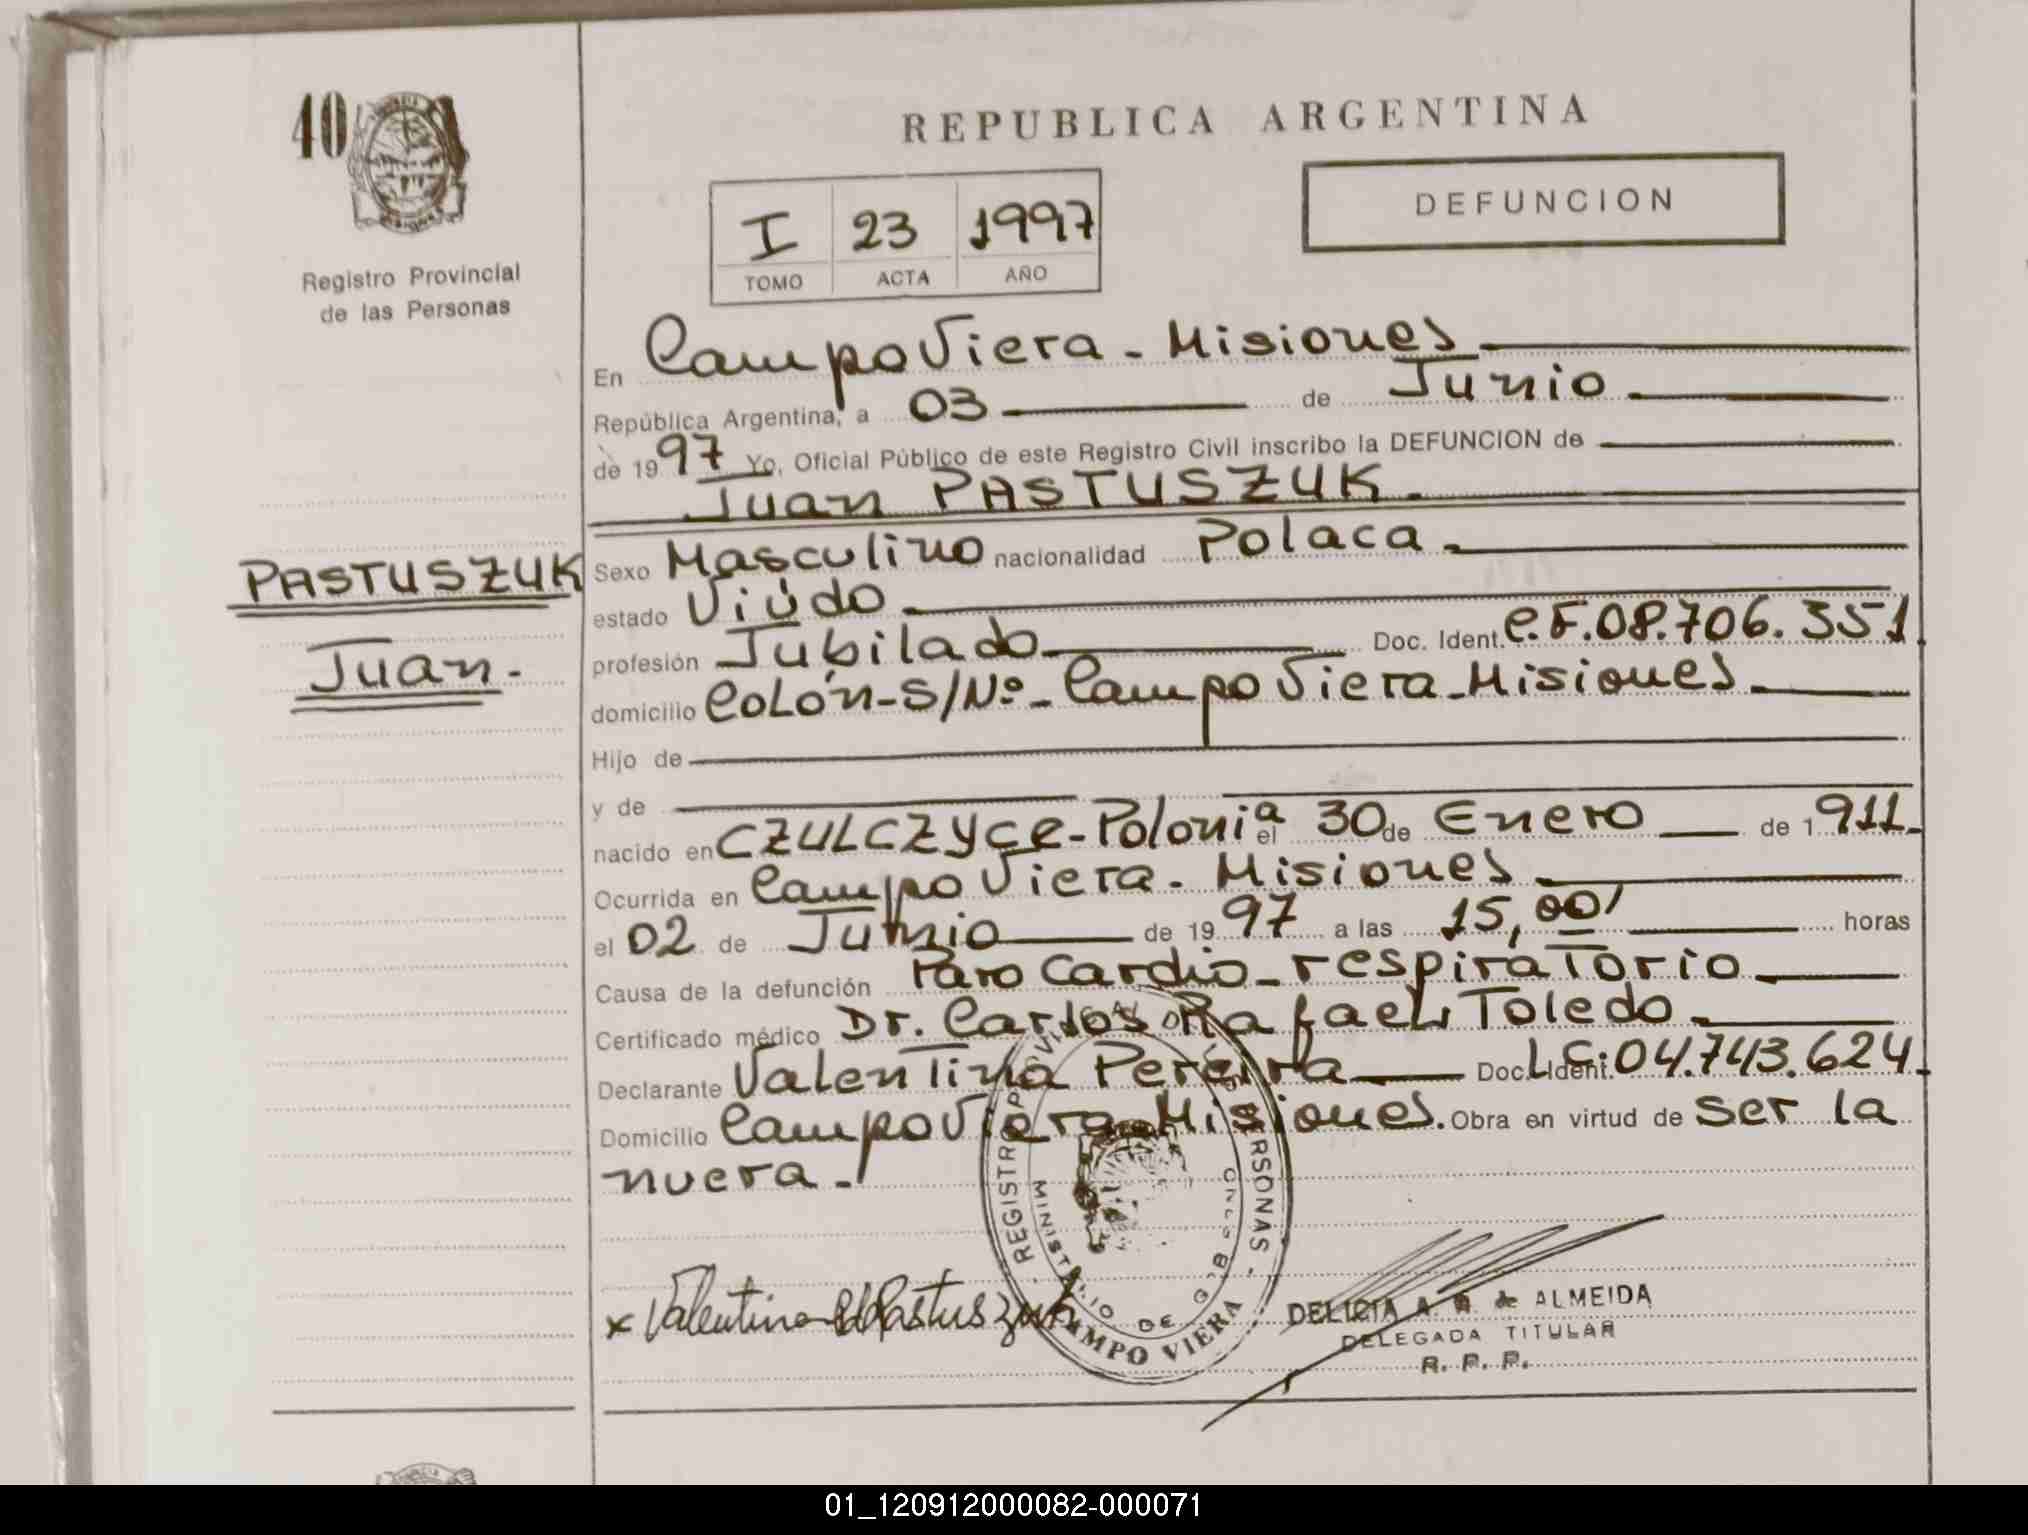 40
REPUBLICA ARGENTINA
DEFUNCION
I 23 1997
TOMO ACTA AÑO
Registro Provincial
de las Personas
En Campo Viera - Misiones
República Argentina, a 03 de Junio
de 1997 Yo, Oficial Público de este Registro Civil inscribo la DEFUNCION de
Juan PASTUSZUK.
PASTUSZUK
Juan.
Sexo Masculino nacionalidad Polaca.
estado Viúdo.
profesión Jubilado Doc. Ident. C.F.08.706.351.
domicilio COLón-S/Nº- Campo Viera-Misiones.
Hijo de
y de
nacido en CZULCZYCE-Polonia el 30 de Enero de 1911.
Ocurrida en Campo Viera. Misiones
el 02 de Junio de 1997 a las 15,00' horas
Causa de la defunción Paro Cardio-respiratorio
Certificado médico Dr. Carlos Rafael Toledo.
Declarante Valentina Pereira Doc. Ident. L.C. 04.743.624.
Domicilio Campo Viera-Misiones. Obra en virtud de ser la
nuera.
REGISTRO PROVINCIAL DE LAS PERSONAS
MINISTERIO DE GOB
CAMPO VIERA
x Valentina P de Pastuszuk
DELICIA A. de ALMEIDA
DELEGADA TITULAR
R. P. P.
01_120912000082-000071